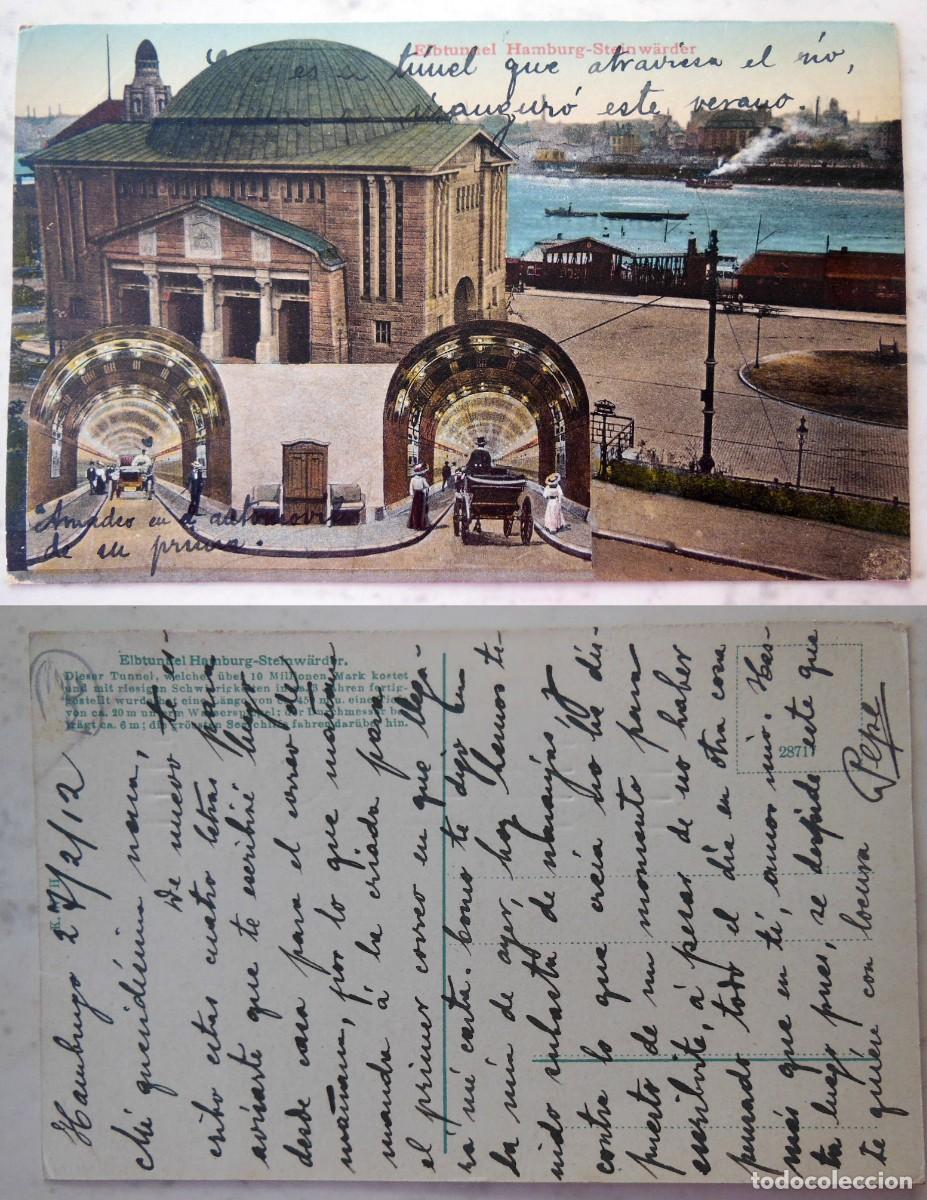 Elbtunnel Hamburg-Steinwärder
es tunel que atraviesa el río,
inauguró este verano.
"Amadeo en automovil
de su prima.
Elbtunnel Hamburg-Steinwärder.
Dieser Tunnel, welcher über 10 Millionen Mark kostet
und mit riesigen Schwierigkeiten in ca. 3 Jahren fertig-
gestellt wurde, hat eine Länge von ca. 450 m u. eine Tiefe
von ca. 20 m unterm Wasserspiegel; der Durchmesser be-
trägt ca. 6 m; die grössten Seeschiffe fahren darüber hin.
28717
Hamburgo 27/2/12
Mi queridísima nena,
De nuevo te es-
cribo estas cuatro letras para
avisarte que te escribiré luego
desde casa para el correo de
mañana, por lo que mañana
manda á la criada para
el primer correo en que llega-
rá mi carta. Como te digo en
la mia de ayer, hoy hemos te-
nido subasta de naranjas y
contra lo que creía no he dis-
puesto de un momento para
escribirte, á pesar de no haber
pensado todo el día en otra cosa
más que en tí, amor mio. Has-
ta luego pues, se despide este que
te quiere con locura
Pepe
todocoleccion